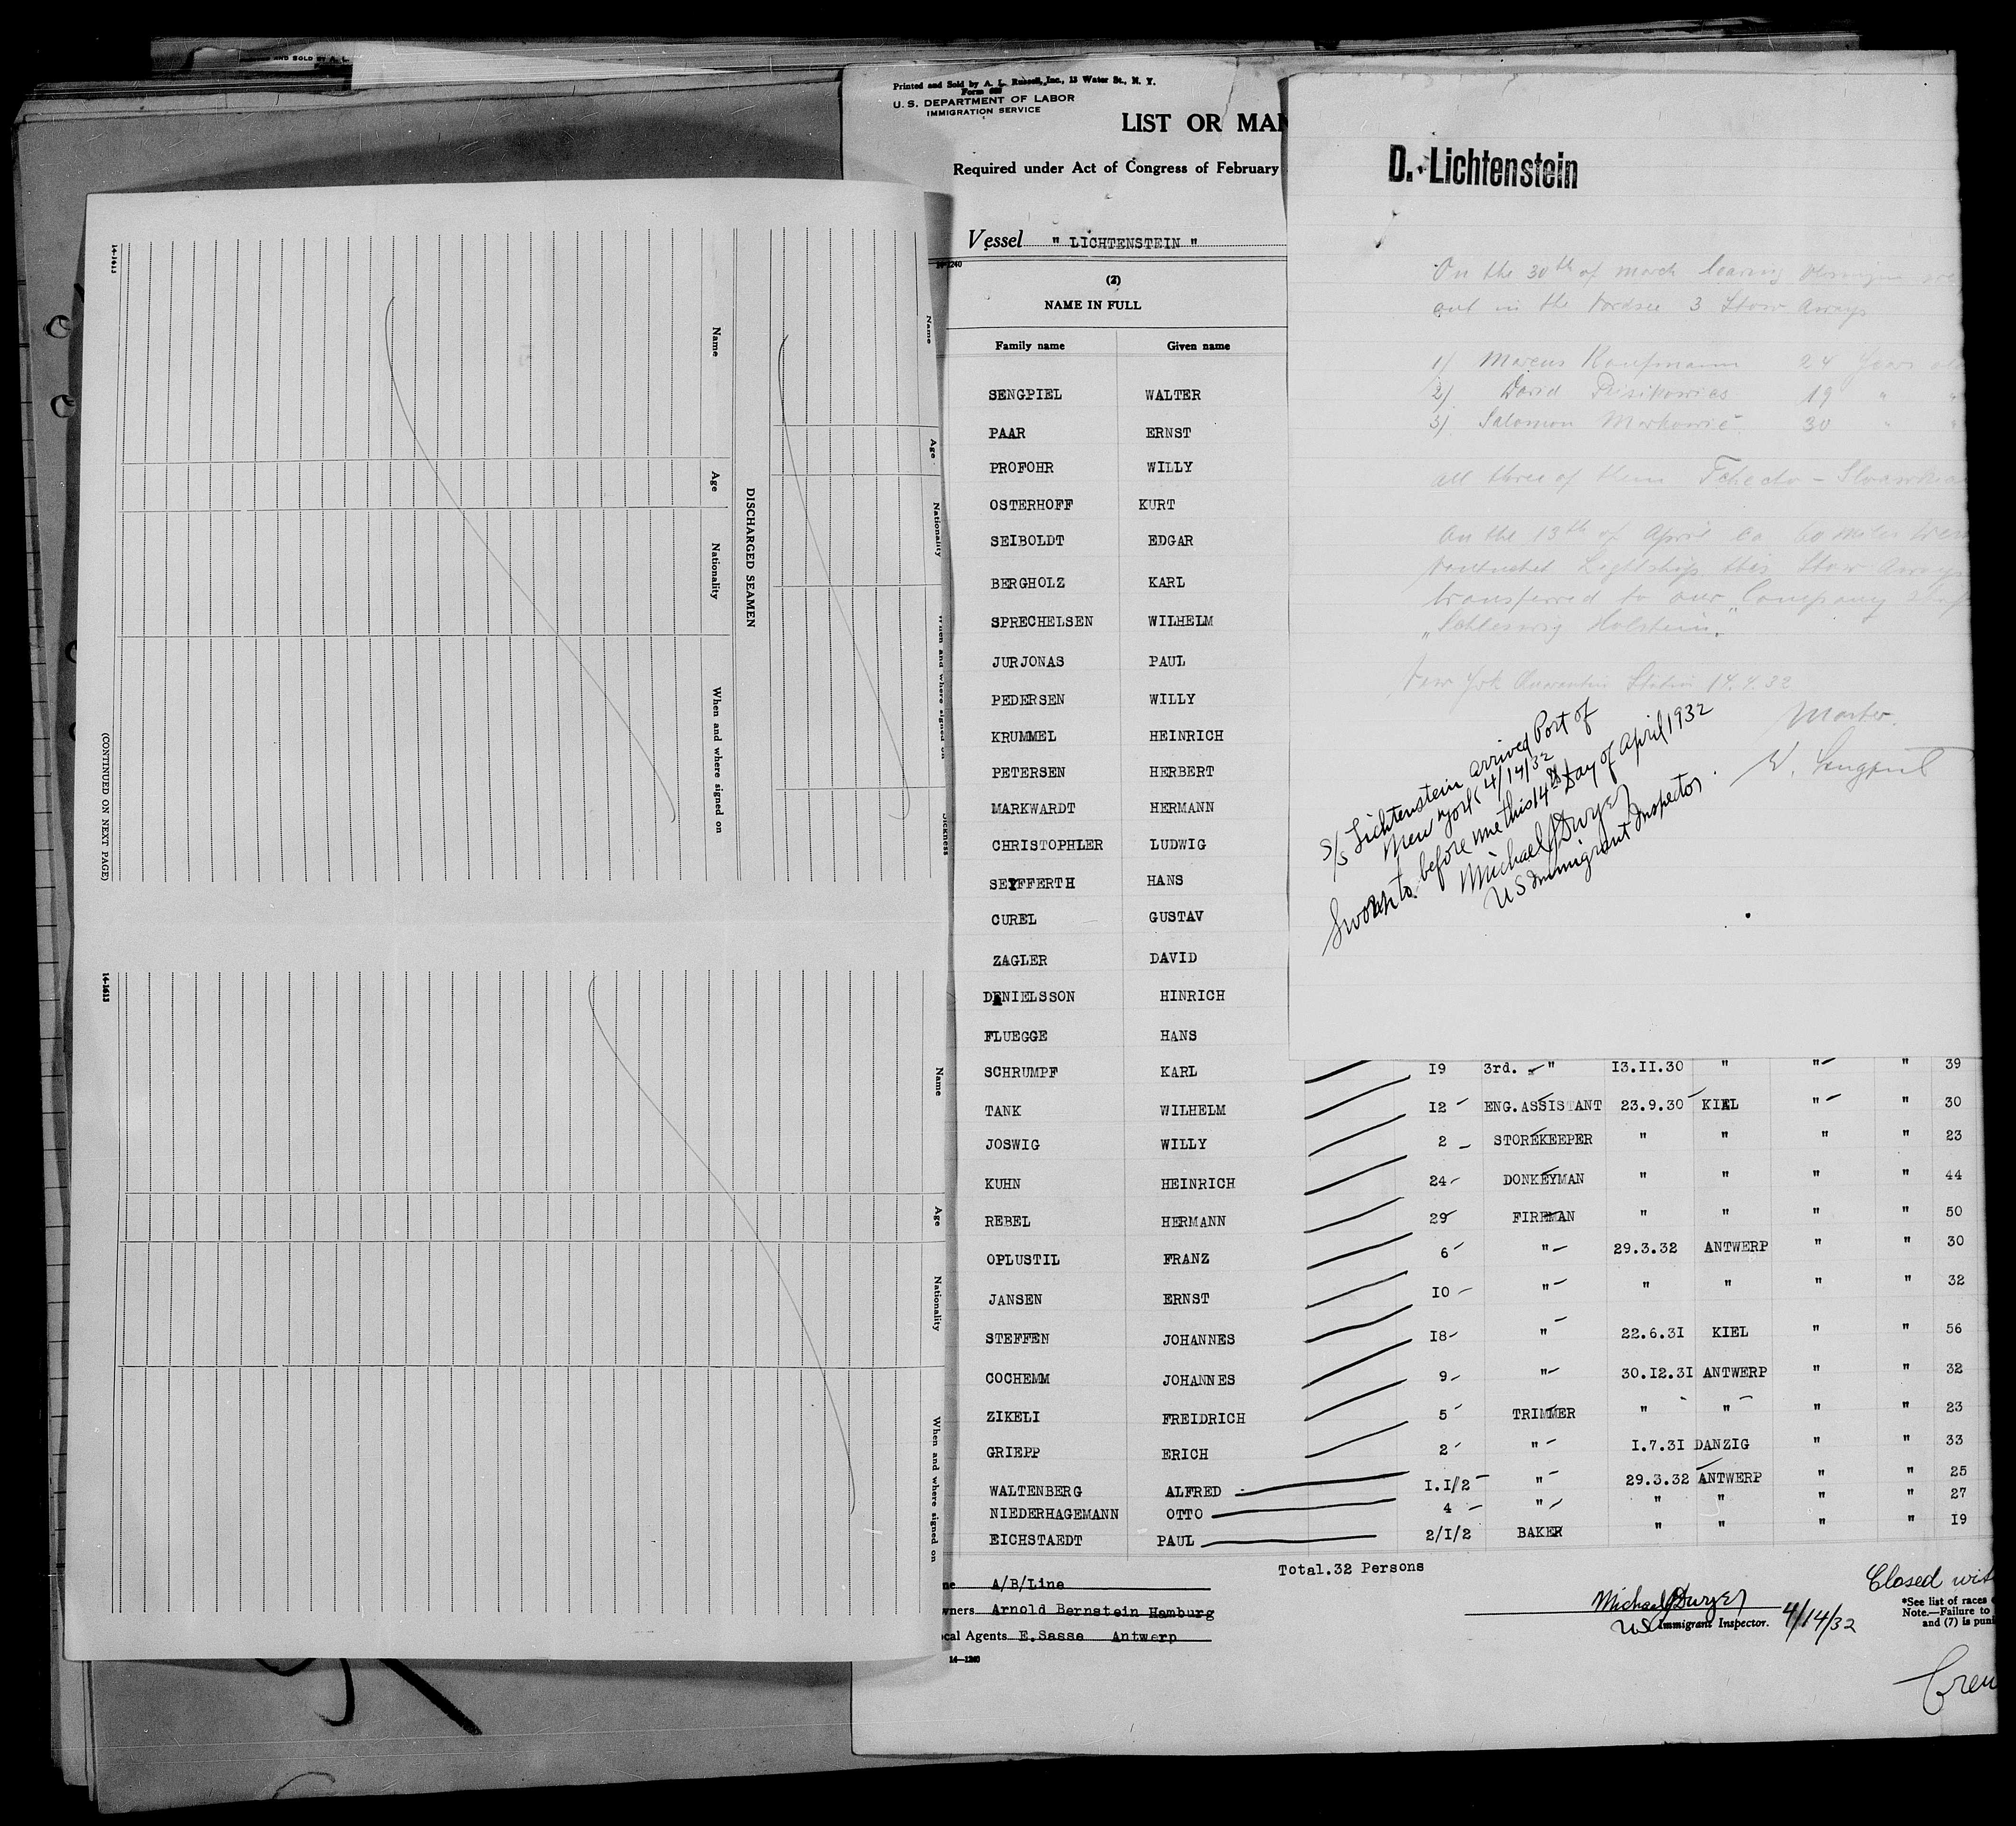 AND SOLD BY A. L.
14-1613
Name
Age
Nationality
When and where signed on
(CONTINUED ON NEXT PAGE)
DISCHARGED SEAMEN
Name
Age
Nationality
When and where signed on
Sickness
14-1613
Name
Age
Nationality
When and where signed on
Printed and Sold by A. L. Russell, Inc., 13 Water St., N. Y.
Form
U. S. DEPARTMENT OF LABOR
IMMIGRATION SERVICE
LIST OR MAN
Required under Act of Congress of February
Vessel " LICHTENSTEIN "
1240
(2)
NAME IN FULL
Family name Given name
SENGPIEL WALTER
PAAR ERNST
PROFOHR WILLY
OSTERHOFF KURT
SEIBOLDT EDGAR
BERGHOLZ KARL
SPRECHELSEN WILHELM
JURJONAS PAUL
PEDERSEN WILLY
KRUMMEL HEINRICH
PETERSEN HERBERT
MARKWARDT HERMANN
CHRISTOPHLER LUDWIG
SEYFFERTH HANS
CUREL GUSTAV
ZAGLER DAVID
DENIELSSON HINRICH
FLUEGGE HANS
SCHRUMPF KARL I9 3rd. " I3.II.30 " " " 39
TANK WILHELM I2 ENG.ASSISTANT 23.9.30 KIEL " " 30
JOSWIG WILLY 2 STOREKEEPER " " " " 23
KUHN HEINRICH 24 DONKEYMAN " " " " 44
REBEL HERMANN 29 FIREMAN " " " " 50
OPLUSTIL FRANZ 6 " 29.3.32 ANTWERP " " 30
JANSEN ERNST IO " " " " " 32
STEFFEN JOHANNES I8 " 22.6.3I KIEL " " 56
COCHEMM JOHANNES 9 " 30.I2.3I ANTWERP " " 32
ZIKELI FREIDRICH 5 TRIMMER " " " " 23
GRIEPP ERICH 2 " I.7.3I DANZIG " " 33
WALTENBERG ALFRED I.I/2 " 29.3.32 ANTWERP " " 25
NIEDERHAGEMANN OTTO 4 " " " " " 27
EICHSTAEDT PAUL 2/I/2 BAKER " " " " I9
Total.32 Persons
ne A/B/Line
wners Arnold Bernstein Hamburg
cal Agents E.Sasse Antwerp
14-1240
Michael J Dwyer
US Immigrant Inspector. 4/14/32
Closed wit
*See list of races
Note.—Failure to
and (7) is puni
Crew
D. Lichtenstein
On the 30th of march leaving
out in the Nordsee 3 Stow Aways
1) Marcus Kaufmann 24 Years old
2) David 19 " "
3) Salomon Markowic 30 " "
all three of them Tchecho - Slowak
On the 13th of April ca 60 miles
Nantucket Lightship this Stow Aways
transferred to our Company
„Schleswig Holstein"
New York Quarantin Station 14.4.32
Master
W. Sengpiel
S/S Lichtenstein arrived Port of
New York 4/14/32
Sworn to before me this 14th Day of April 1932
Michael J Dwyer
US Immigrant Inspector.